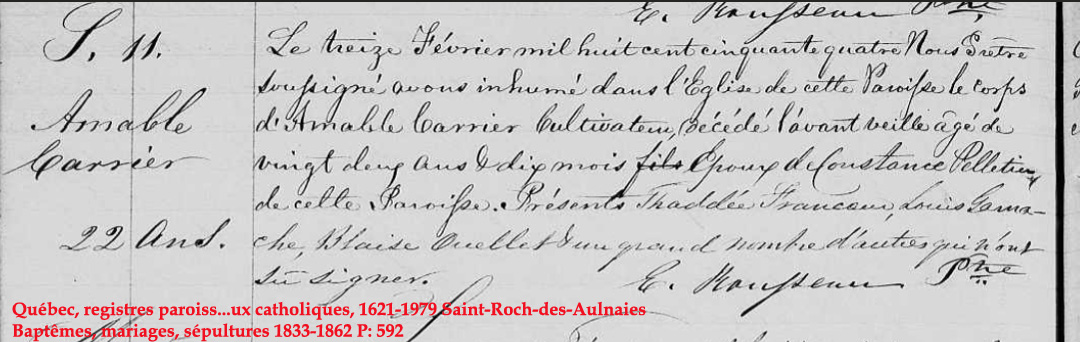 E. Rousseau Ptre
S. 11.
Amable
Carrier
22 Ans.
Le treize Février mil huit cent cinquante quatre Nous Prêtre
soussigné avons inhumé dans l'Eglise de cette Paroisse le corps
d'Amable Carrier Cultivateur, décédé l'avant veille âgé de
vingt deux ans & dix mois fils Epoux de Constance Pelletier
de cette Paroisse. Présents Thaddée Francoeur, Louis Gama-
che, Blaise Ouellet & un grand nombre d'autres qui n'ont
sû signer.
E. Rousseau Ptre
Québec, registres paroiss...ux catholiques, 1621-1979 Saint-Roch-des-Aulnaies
Baptêmes, mariages, sépultures 1833-1862 P: 592